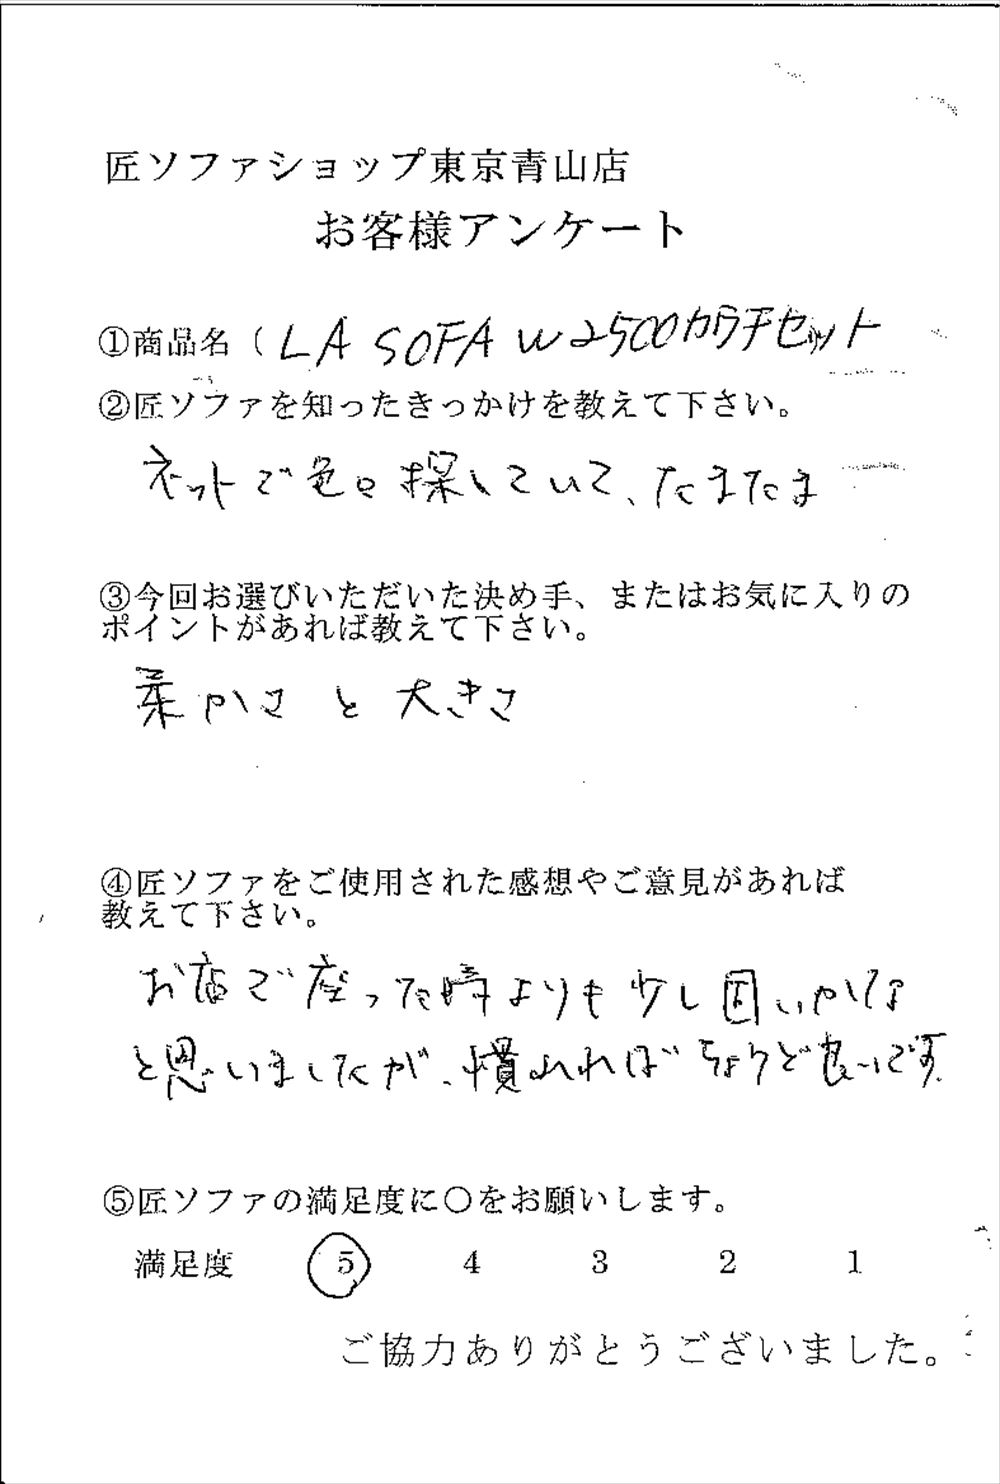 匠ソファショップ東京青山店
お客様アンケート
①商品名（LA SOFA W2500カウチセット
②匠ソファを知ったきっかけを教えて下さい。
ネットで色々探していて、たまたま
③今回お選びいただいた決め手、またはお気に入りの
ポイントがあれば教えて下さい。
柔かさと大きさ
④匠ソファをご使用された感想やご意見があれば
教えて下さい。
お店で座った時よりも少し固いかな
と思いましたが、慣れればちょうど良いです。
⑤匠ソファの満足度に○をお願いします。
満足度 5 4 3 2 1
ご協力ありがとうございました。